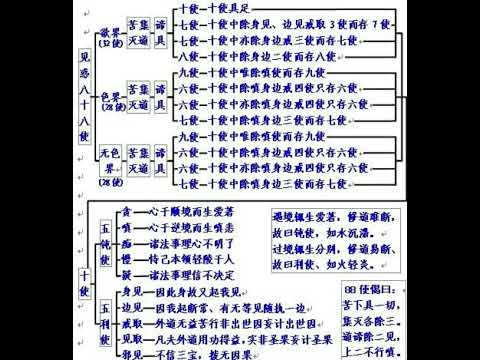 见惑八十八使
欲界
(32使)
苦集灭道
谛具
十使─十使具足
七使─十使中除身见、边见戒取3使而存7使
七使─十使中亦除身边戒三使而存七使
八使─十使中除身边二使而存八使
色界
(28使)
苦集灭道
谛具
九使─十使中唯除嗔使而存九使
六使─十使中除嗔身边戒四使只存六使
六使─十使中亦除嗔身边戒四使只存六使
七使─十使中除嗔身边三使而存七使
无色界
(28使)
苦集灭道
谛具
九使─十使中唯除嗔使而存九使
六使─十使中除嗔身边戒四使只存六使
六使─十使中亦除嗔身边戒四使只存六使
七使─十使中除嗔身边三使而存七使
十使
五钝使
贪─心于顺境而生爱著
嗔─心于逆境而生嗔恚
痴─诸法事理心不明了
慢─恃己本领轻陵于人
疑─诸法事理信不决定
五利使
身见─因此身故又起我见
边见─因我起断常、有无等见随执一边
戒取─外道无益苦行非出世因妄计出世因
见取─凡夫外道用功得益,实非圣果妄计圣果
邪见─不信三宝、拨无因果
遇境辄生爱著,修道难断,
故曰钝使,如水沉滞。
过境辄生分别,修道易断、
故曰利使、如火轻炎。
88使偈曰:
苦下具一切,
集灭各除三。
道谛除二见,
上二不行嗔。